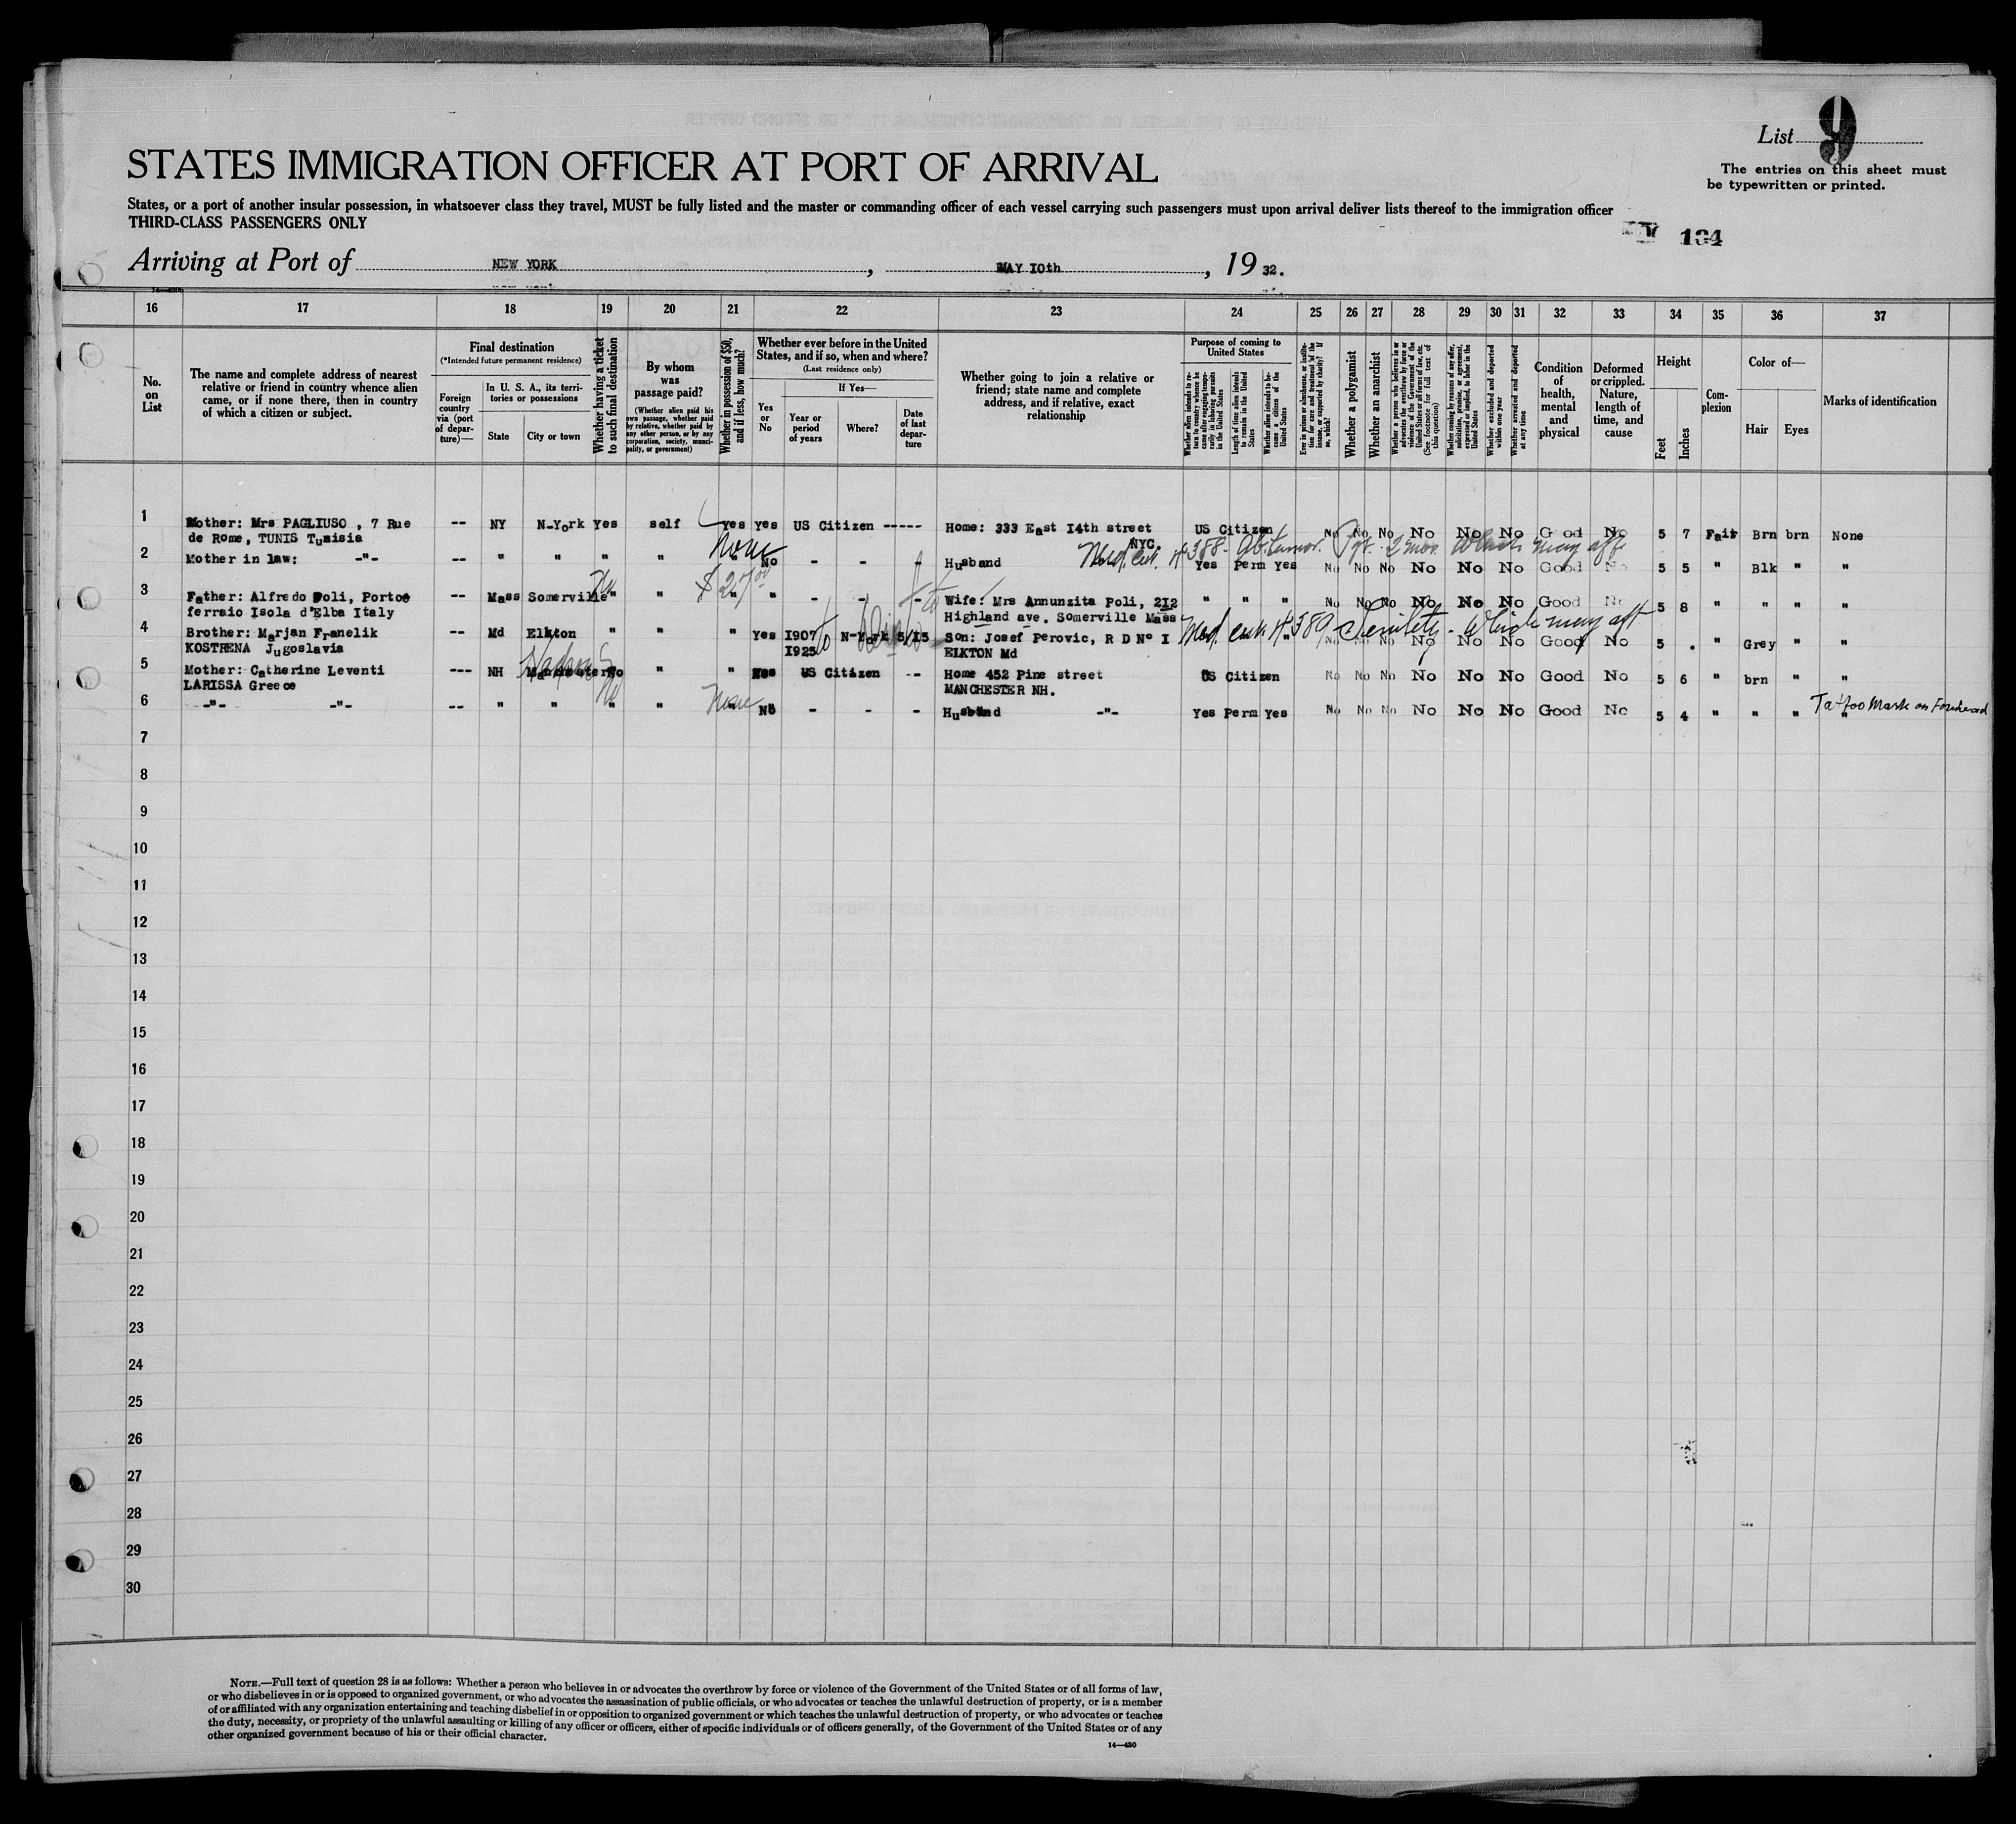 List 9
The entries on this sheet must
be typewritten or printed.
STATES IMMIGRATION OFFICER AT PORT OF ARRIVAL
States, or a port of another insular possession, in whatsoever class they travel, MUST be fully listed and the master or commanding officer of each vessel carrying such passengers must upon arrival deliver lists thereof to the immigration officer
THIRD-CLASS PASSENGERS ONLY
Arriving at Port of NEW YORK, MAY I0th, 19 32.
16 17 18 19 20 21 22 23 24 25 26 27 28 29 30 31 32 33 34 35 36 37
No.
on
List
The name and complete address of nearest
relative or friend in country whence alien
came, or if none there, then in country
of which a citizen or subject.
Final destination
(*Intended future permanent residence)
Foreign
country
via (port
of depar-
ture)—
In U. S. A., its terri-
tories or possessions
State
City or town
Whether having a ticket
to such final destination
By whom
was
passage paid?
(Whether alien paid his
own passage, whether paid
by relative, whether paid by
any other person, or by any
corporation, society, munici-
pality, or government)
Whether in possession of $50,
and if less, how much?
Whether ever before in the United
States, and if so, when and where?
(Last residence only)
Yes
or
No
If Yes—
Year or
period
of years
Where?
Date
of last
depar-
ture
Whether going to join a relative or
friend; state name and complete
address, and if relative, exact
relationship
Purpose of coming to
United States
Whether alien intends to re-
turn to country whence he
came after engaging tempo-
rarily in laboring pursuits
in the United States
Length of time alien intends
to remain in the United
States
Whether alien intends to be-
come a citizen of the
United States
Ever in prison or almshouse, or institu-
tion for care and treatment of the
insane, or supported by charity? If
so, which?
Whether a polygamist
Whether an anarchist
Whether a person who believes in or
advocates the overthrow by force or
violence of the Government of the
United States or all forms of law, etc.
(See footnote for full text of
this question)
Whether coming by reason of any offer,
solicitation, promise, or agreement,
expressed or implied, to labor in the
United States
Whether excluded and deported
within one year
Whether arrested and deported
at any time
Condition
of
health,
mental
and
physical
Deformed
or crippled.
Nature,
length of
time, and
cause
Height
Feet
Inches
Com-
plexion
Color of—
Hair
Eyes
Marks of identification
1 Mother: Mrs PAGLIUSO , 7 Rue -- NY N-York Yes self Yes Yes US Citizen ----- Home: 333 East I4th street US Citizen No No No No No No Good No 5 7 Fair Brn brn None
de Rome, TUNIS Tunisia NYC.
None Med. cert. # 388 2 mos. which may aff
2 Mother in law: -"- -- " " " " No - - - Husband Yes Perm Yes No No No No No No Good No 5 5 " Blk " "
No $20/00
3 Father: Alfredo Poli, Portoe -- Mass Somerville " " " " - - - Wife: Mrs Annunzita Poli, 2I2 " " " No No No No No No Good No 5 8 " " " "
ferraio Isola d'Elba Italy Highland ave. Somerville Mass
Med. cert. # 389 Senility - Which may aff
4 Brother: Marjan Franelik -- Md Elkton " " Yes I907 to N-York 5/I5 Son: Josef Perovic, R D N° I No No No No No No Good No 5 . Grey " "
KOSTRENA Jugoslavia I925 ELKTON Md
5 Mother: Catherine Leventi --- NH Manchester No " " Yes US Citizen -- Home 452 Pine street US Citizen No No No No No No Good No 5 6 " brn " "
LARISSA Greece MANCHESTER NH.
6 -"- -"- -- " " " " None No - - - Husband -"- Yes Perm Yes No No No No No No Good No 5 4 " " " Tattoo Mark on Forehead
7
8
9
10
11
12
13
14
15
16
17
18
19
20
21
22
23
24
25
26
27
28
29
30
NOTE.—Full text of question 28 is as follows: Whether a person who believes in or advocates the overthrow by force or violence of the Government of the United States or of all forms of law,
or who disbelieves in or is opposed to organized government, or who advocates the assassination of public officials, or who advocates or teaches the unlawful destruction of property, or is a member
of or affiliated with any organization entertaining and teaching disbelief in or opposition to organized government or which teaches the unlawful destruction of property, or who advocates or teaches
the duty, necessity, or propriety of the unlawful assaulting or killing of any officer or officers, either of specific individuals or of officers generally, of the Government of the United States or of any
other organized government because of his or their official character.
14—430